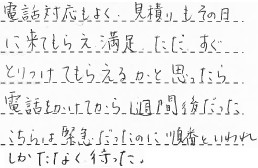 電話対応もよく 見積りもその日
に来てもらえ満足 ただ すぐ
とりつけてもらえるかと思ったら
電話をかけてから1週間後だった
こちらは緊急だったのに順番といわれ
しかたなく待った.